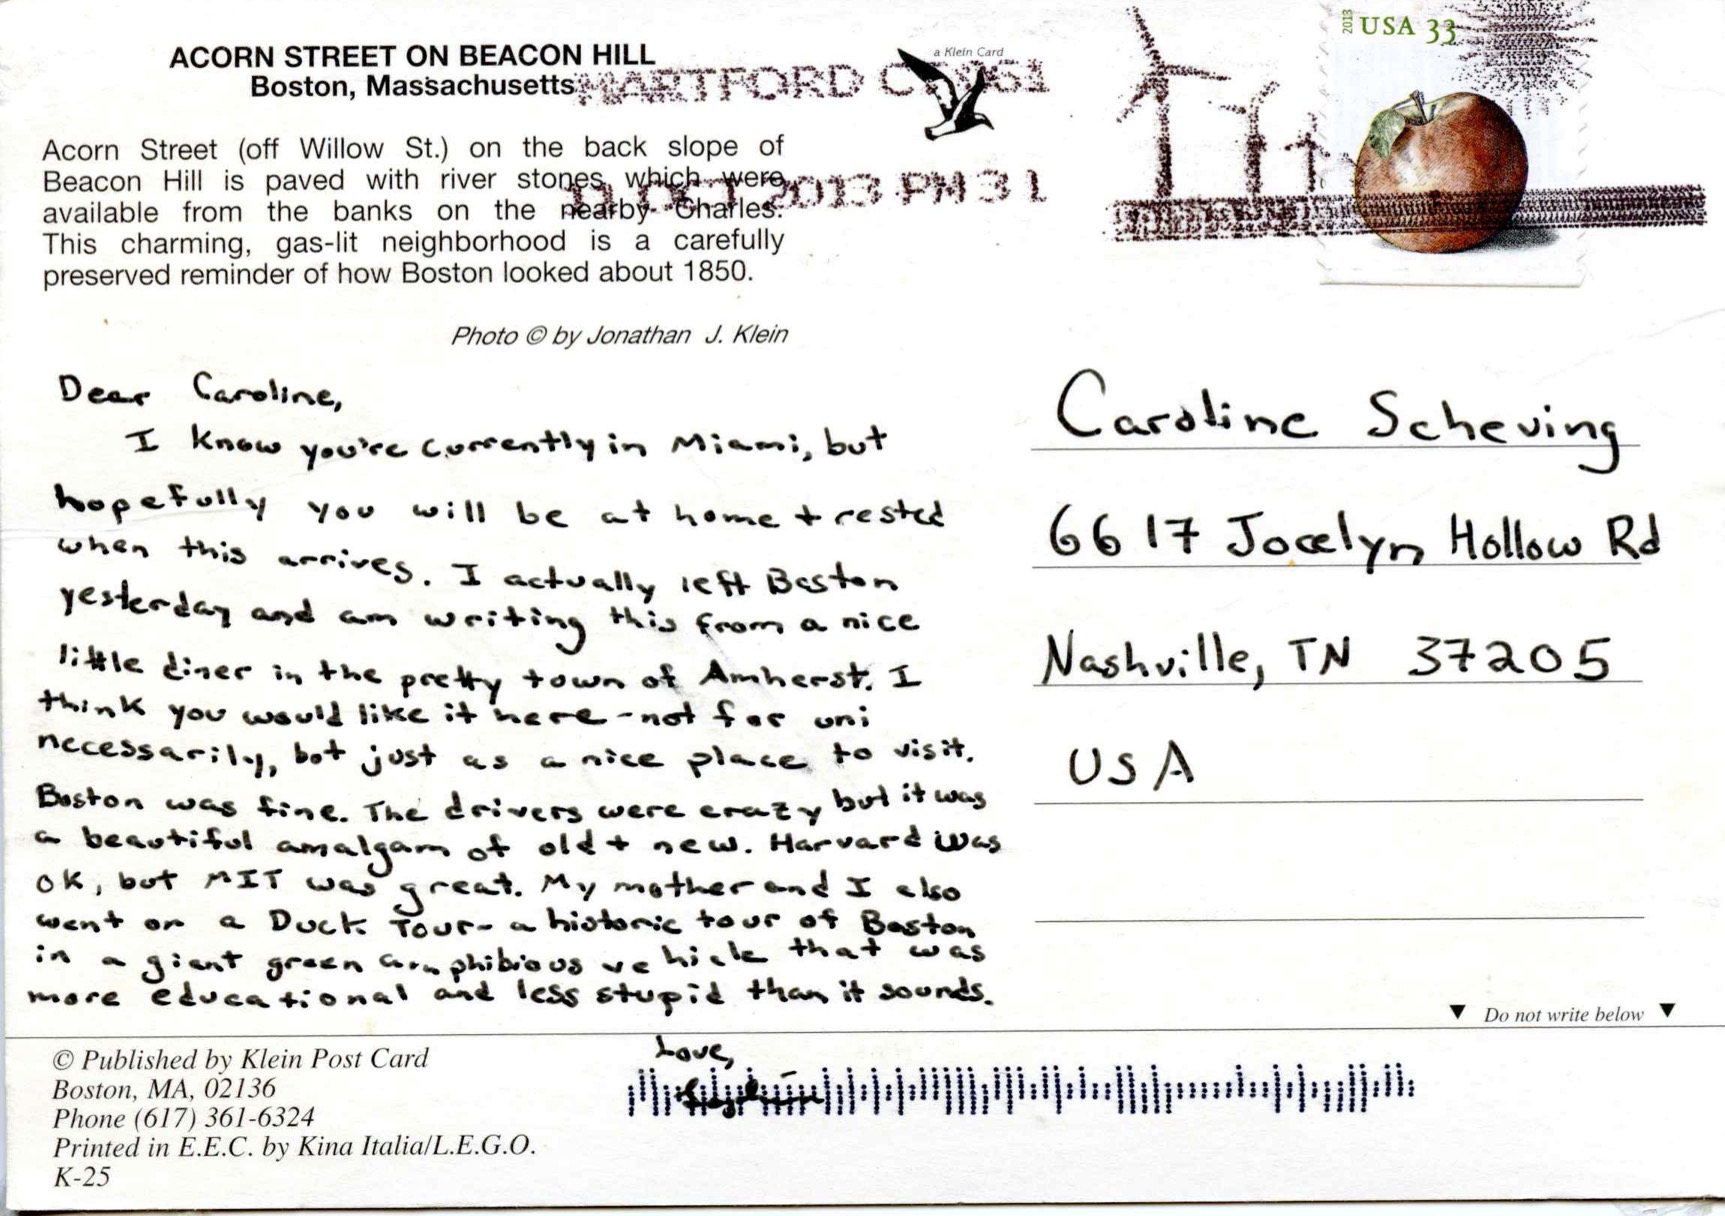 ACORN STREET ON BEACON HILL
Boston, Massachusetts
Acorn Street (off Willow St.) on the back slope of
Beacon Hill is paved with river stones which were
available from the banks on the nearby Charles.
This charming, gas-lit neighborhood is a carefully
preserved reminder of how Boston looked about 1850.
Photo © by Jonathan J. Klein
a Klein Card
HARTFORD CT 061
OCT 2013 PM 3 L
2013 USA 33
Dear Caroline,
I know you're currently in Miami, but
hopefully you will be at home + rested
when this arrives. I actually left Boston
yesterday and am writing this from a nice
little diner in the pretty town of Amherst. I
think you would like it here - not for uni
necessarily, but just as a nice place to visit.
Boston was fine. The drivers were crazy but it was
a beautiful amalgam of old + new. Harvard was
OK, but MIT was great. My mother and I also
went on a Duck Tour - a historic tour of Boston
in a giant green amphibious vehicle that was
more educational and less stupid than it sounds.
Love,
Caroline Scheving
6617 Jocelyn Hollow Rd
Nashville, TN 37205
USA
▼ Do not write below ▼
© Published by Klein Post Card
Boston, MA, 02136
Phone (617) 361-6324
Printed in E.E.C. by Kina Italia/L.E.G.O.
K-25